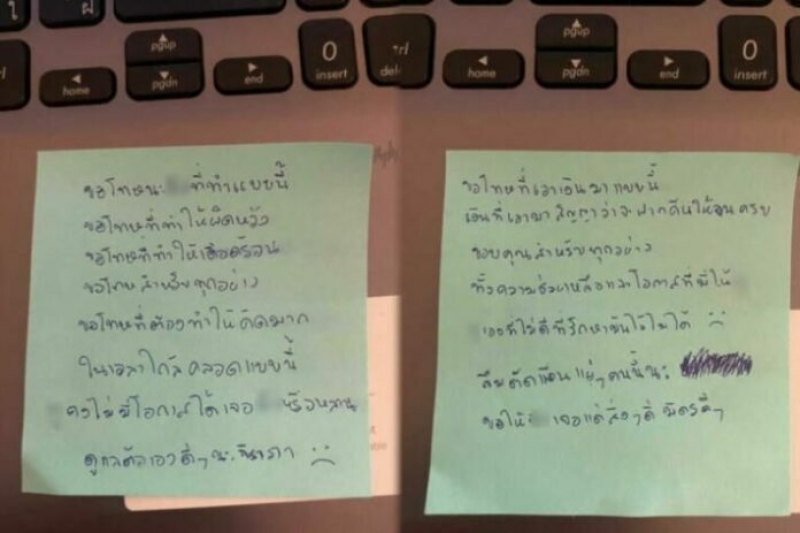 ใ ฝ
pgup
pgdn
home
end
0
insert
del
home
pgup
pgdn
end
0
insert
ขอโทษนะ ที่ทำแบบนี้
ขอโทษที่ทำให้ผิดหวัง
ขอโทษที่ทำให้เดือดร้อน
ขอโทษสำหรับทุกอย่าง
ขอโทษที่ต้องทำให้คิดมาก
ในเวลาใกล้คลอดแบบนี้
คงไม่มีโอกาสได้เจอ หรือหลาน
ดูแลตัวเองดีๆ นะ
ขอโทษที่เอาเงินมาแบบนี้
เงินที่เอามาสัญญาว่าจะหาคืนให้ครบ
ขอบคุณสำหรับทุกอย่าง
ทั้งความช่วยเหลือและโอกาสที่มีให้
เองที่ไม่ดีที่รักษามันไว้ไม่ได้
ลืมเพื่อนแย่ๆคนนี้นะ
ขอให้ เจอแต่สิ่งๆดี มิตรดีๆ